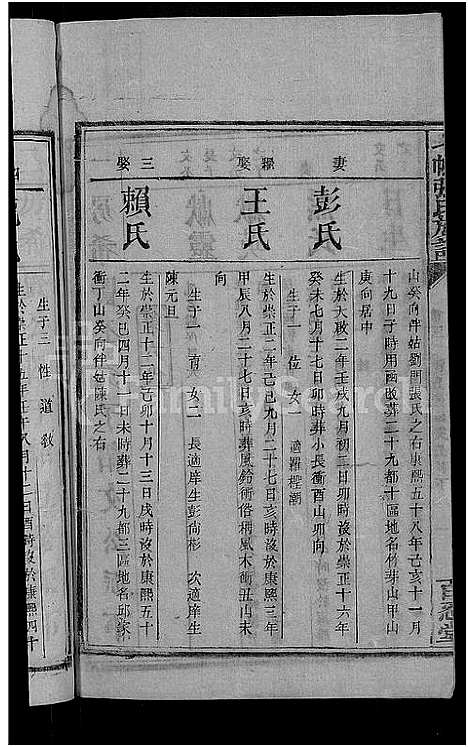 山癸向伴姑劉開張氏之右康熙五十八年己亥十一月
十九日子時用函改葬二十九都十區地名竹芽山甲山
庚向居中
妻
彭氏
生於天啟二年壬戌九月初二日卯時歿於崇正十六年
癸未七月十七日卯時葬小長衝酉山卯向
生子一 位 女一 適羅程湖
繼娶
王氏
生於崇正二年己巳九月二十七日亥時歿於康熙三年
甲辰八月二十七日亥時葬風鈴衝俗稱風木衝丑山未
向
生子一 育 女二 長適庠生彭尚彬 次適庠生
陳元旦
三娶
賴氏
生於崇正十二年己卯十月十三日戌時沒於康熙五十
二年癸巳四月十一日未時葬二十九都三區地名邱家
衝丁山癸向伴姑陳氏之右
生子三 性 道 敎
FamilySearch